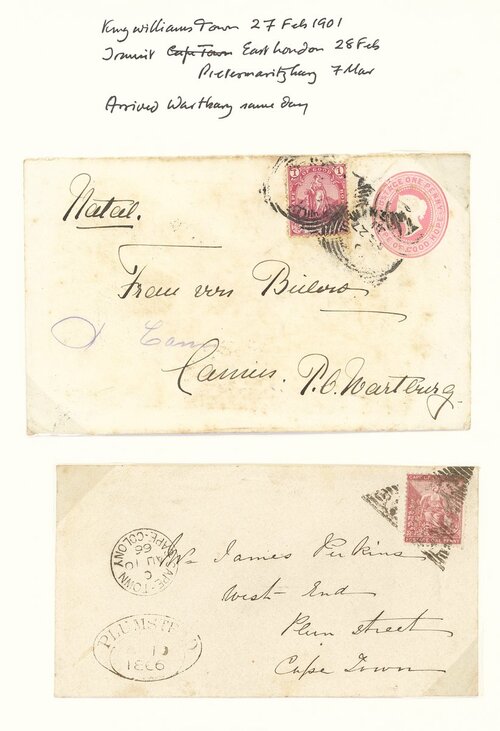 Kingwilliams Town 27 Feb 1901
Transit Cape Town East London 28 Feb
Pietermaritzburg 7 Mar
Arrived Wartburg same day
1 OF GOOD 1
ONE PENNY
GOOD HOPE
Natal.
Frau von Bülow
Cannies. P.O. Wartburg.
CAPE-TOWN CAPE-COLONY
C
AU 10
66
Mr James Perkins
West-End
Plum street
Cape Town
PLUMSTEAD
1866